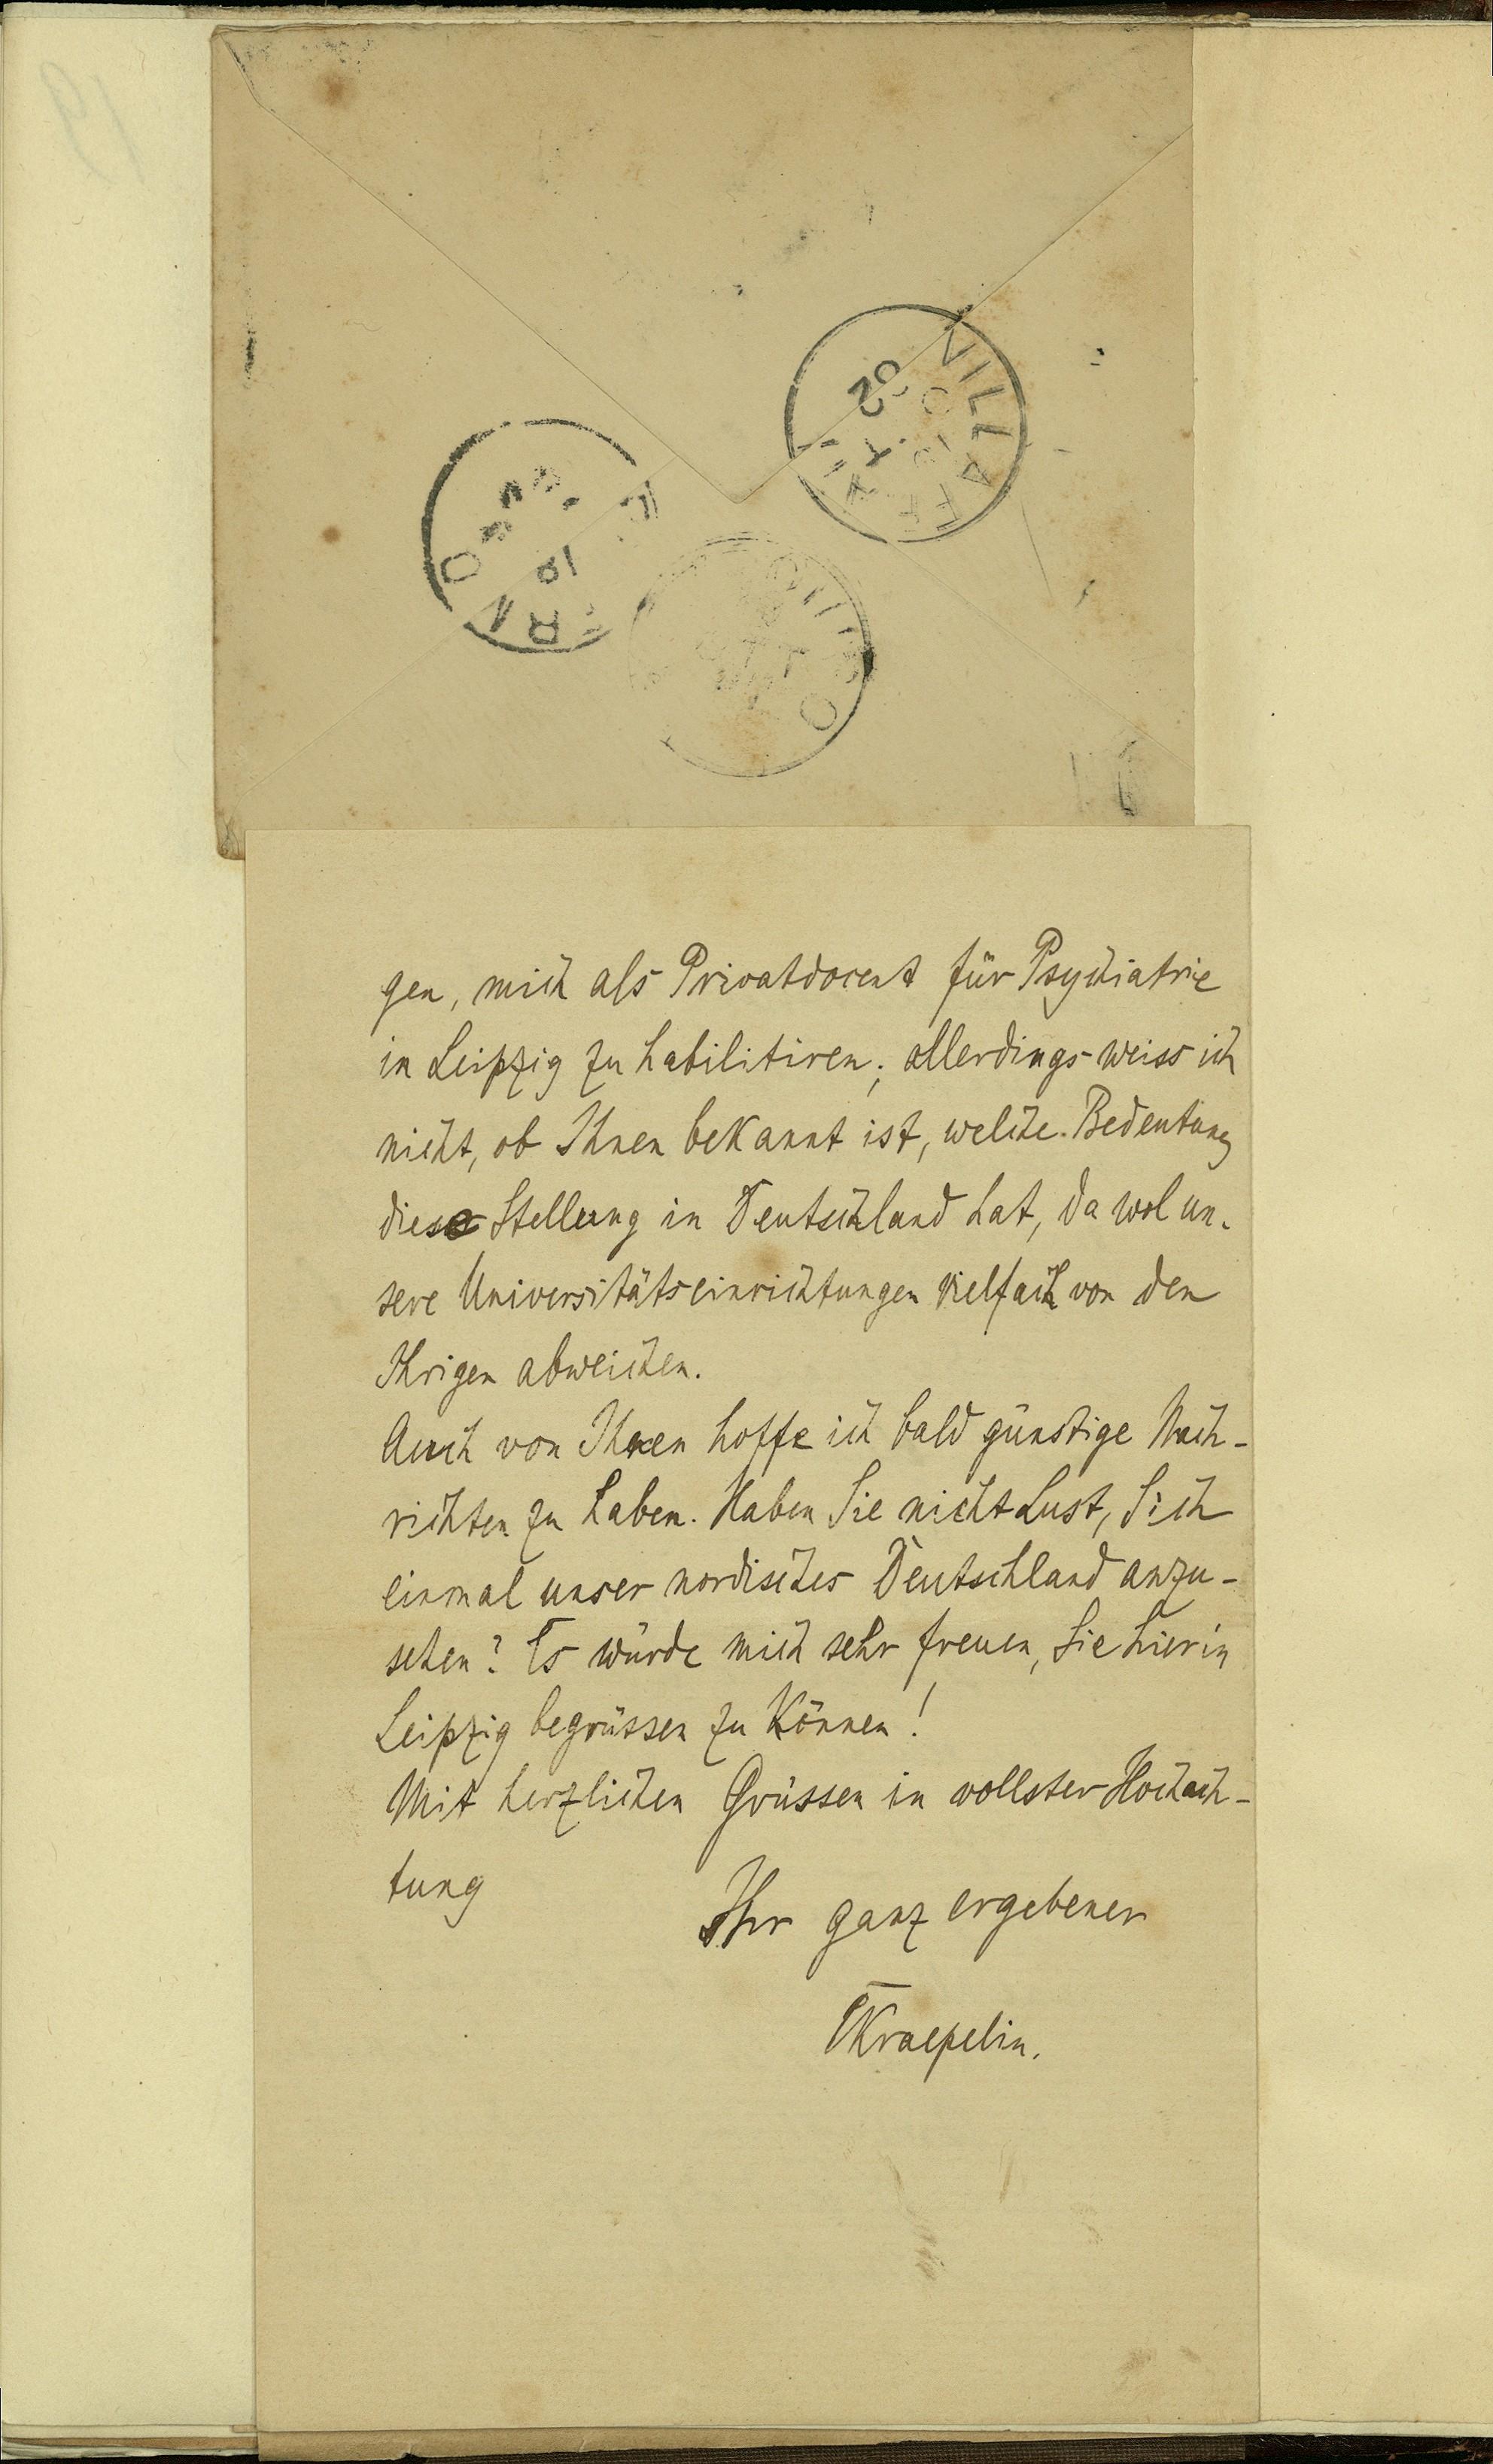 19
VILLAFR
gen, mich als Privatdocent für Psychiatrie
in Leipzig zu habilitiren; allerdings weiss ich
nicht, ob Ihnen bekannt ist, welche Bedeutung
diese Stellung in Deutschland hat, da wol un-
sere Universitätseinrichtungen vielfach von den
Ihrigen abweichen.
Auch von Ihnen hoffe ich bald günstige Nach-
richten zu haben. Haben Sie nicht Lust, Sich
einmal unser nordisches Deutschland anzu-
sehen? Es würde mich sehr freuen, Sie hier in
Leipzig begrüssen zu können!
Mit herzlichen Grüssen in vollster Hochach-
tung
Ihr ganz ergebener
EKraepelin.